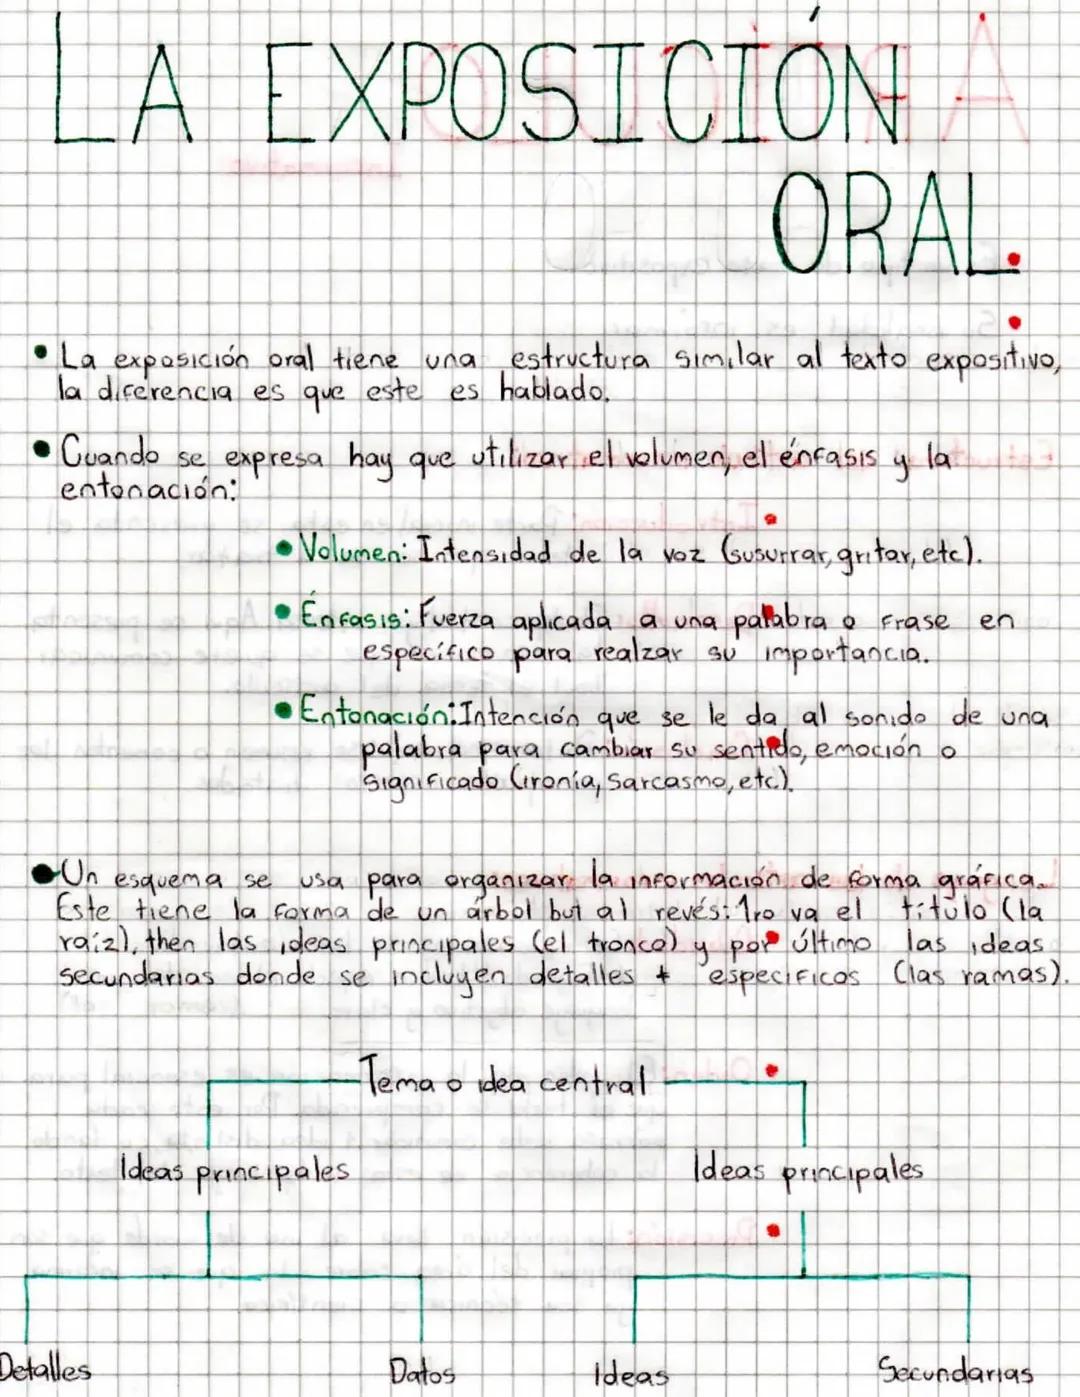 LA EXPOSICIÓN
ORAL.
• La exposición oral tiene una estructura similar al texto expositivo,
la diferencia es que este es hablado.
• Cuando se expresa hay que utilizar el volumen, el énfasis y la
entonación:
• Volumen: Intensidad de la voz (susurrar, gritar, etc).
• Énfasis: Fuerza aplicada a una palabra o frase en
específico para realzar su importancia.
• Entonación: Intención que se le da al sonido de una
palabra para cambiar su sentido, emoción o
significado (ironía, sarcasmo, etc).
• Un esquema se usa para organizar la información de forma gráfica.
Este tiene la forma de un árbol but al revés: 1ro va el título (la
raíz), then las ideas principales (el tronco) y por último las ideas
secundarias donde se incluyen detalles + especificos (las ramas).
Tema o idea central
Ideas principales Ideas principales
Detalles Datos Ideas Secundarias